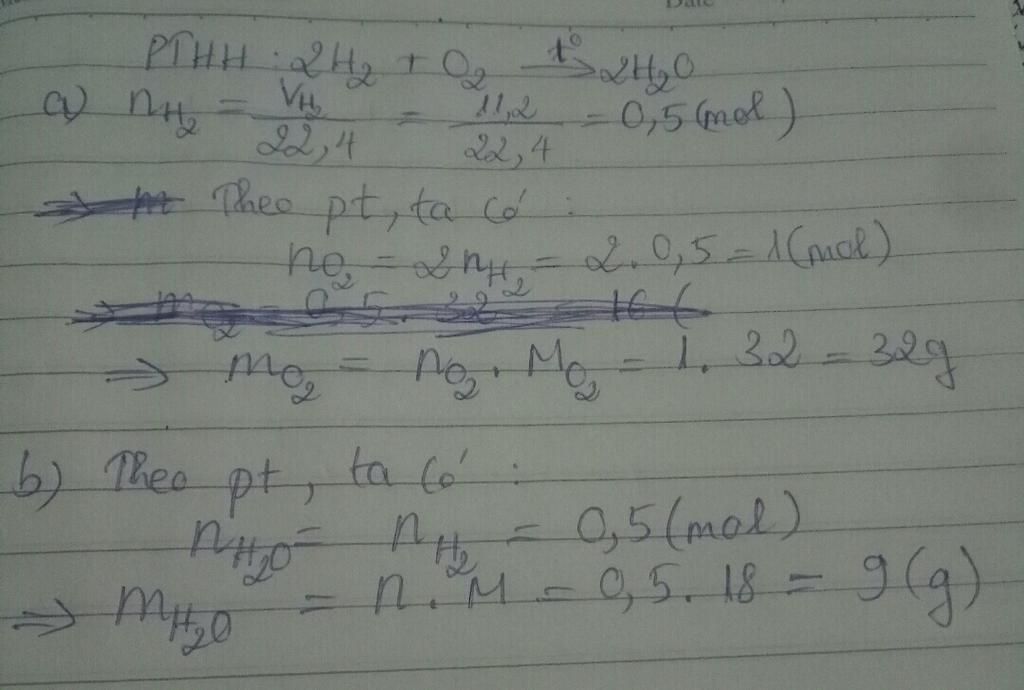 Date
PTHH : 2H₂ + O₂ —t°→ 2H₂O
a) nH₂ = VH₂/22,4 = 11,2/22,4 = 0,5 (mol)
⇒ m Theo pt, ta có :
nO₂ = 2nH₂ = 2.0,5 = 1 (mol)
⇒ mO₂ = 0,5.32 = 16 (
⇒ mO₂ = nO₂ . MO₂ = 1. 32 = 32g
b) Theo pt, ta có :
nH₂O = nH₂ = 0,5 (mol)
⇒ mH₂O = n . M = 0,5. 18 = 9 (g)